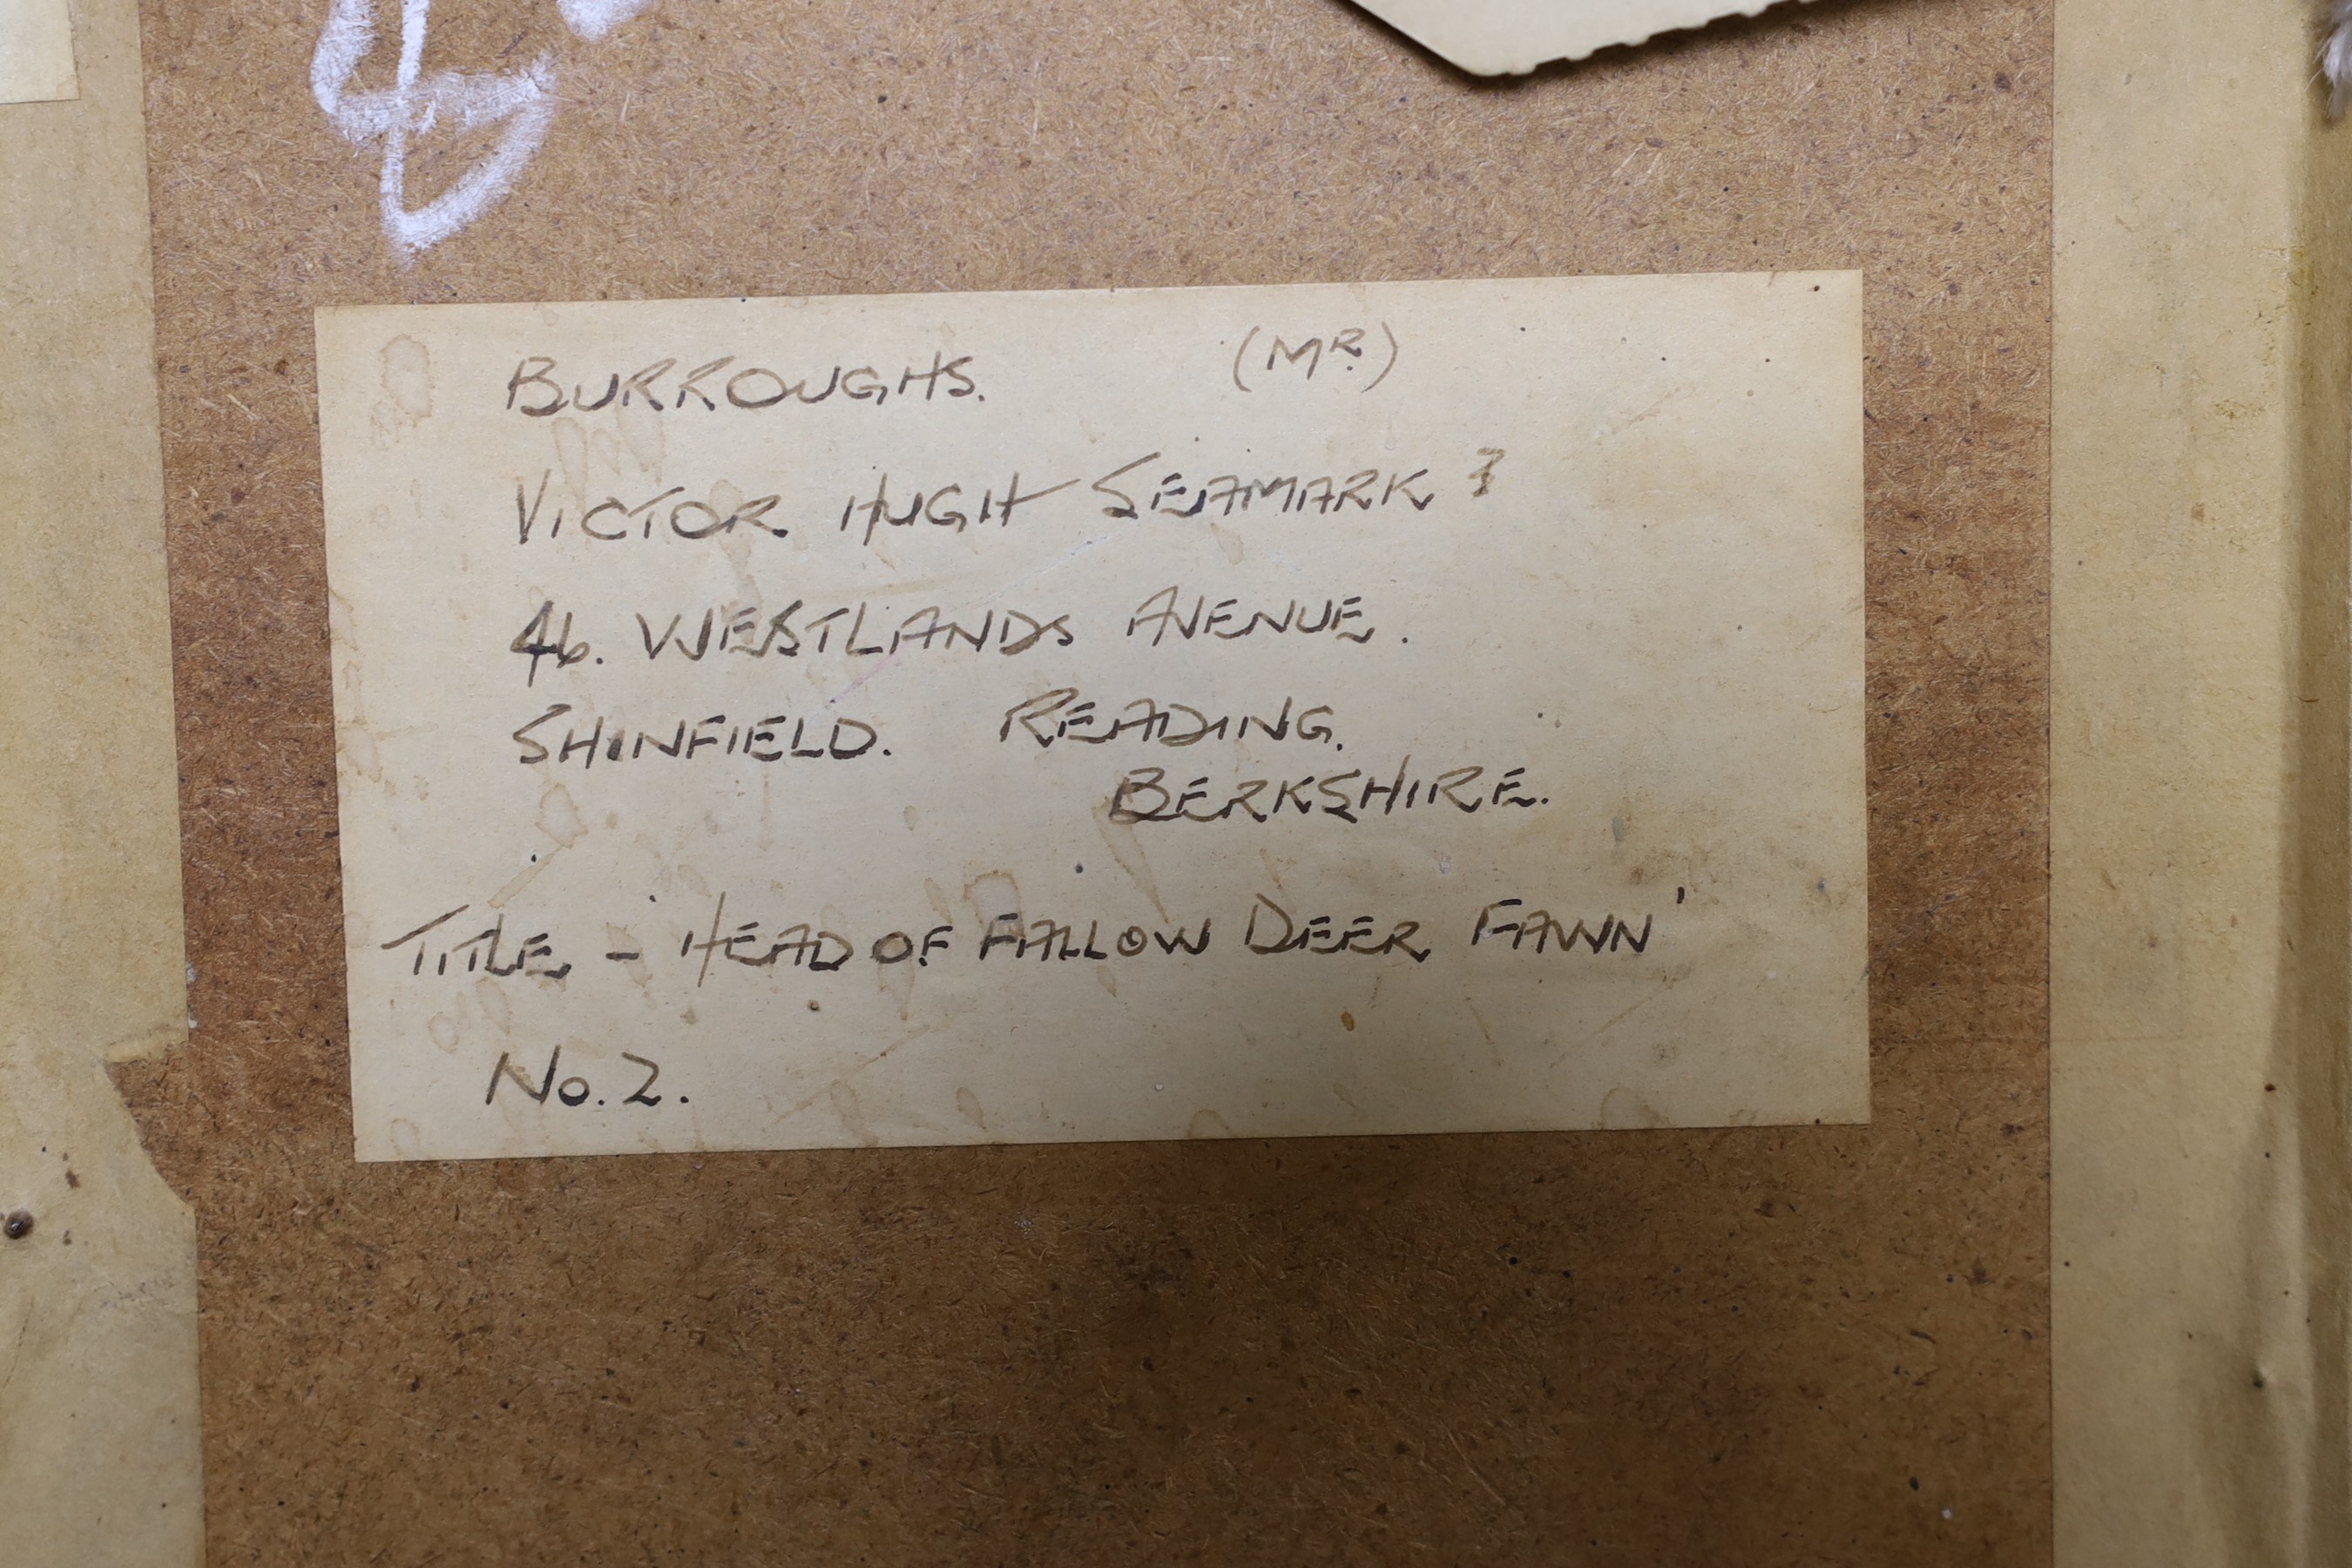 BURROUGHS. (MR)
VICTOR HUGH SEAMARK
46. WESTLANDS AVENUE.
SHINFIELD. READING.
BERKSHIRE.
TITLE - HEAD OF FALLOW DEER FAWN'
No. 2.